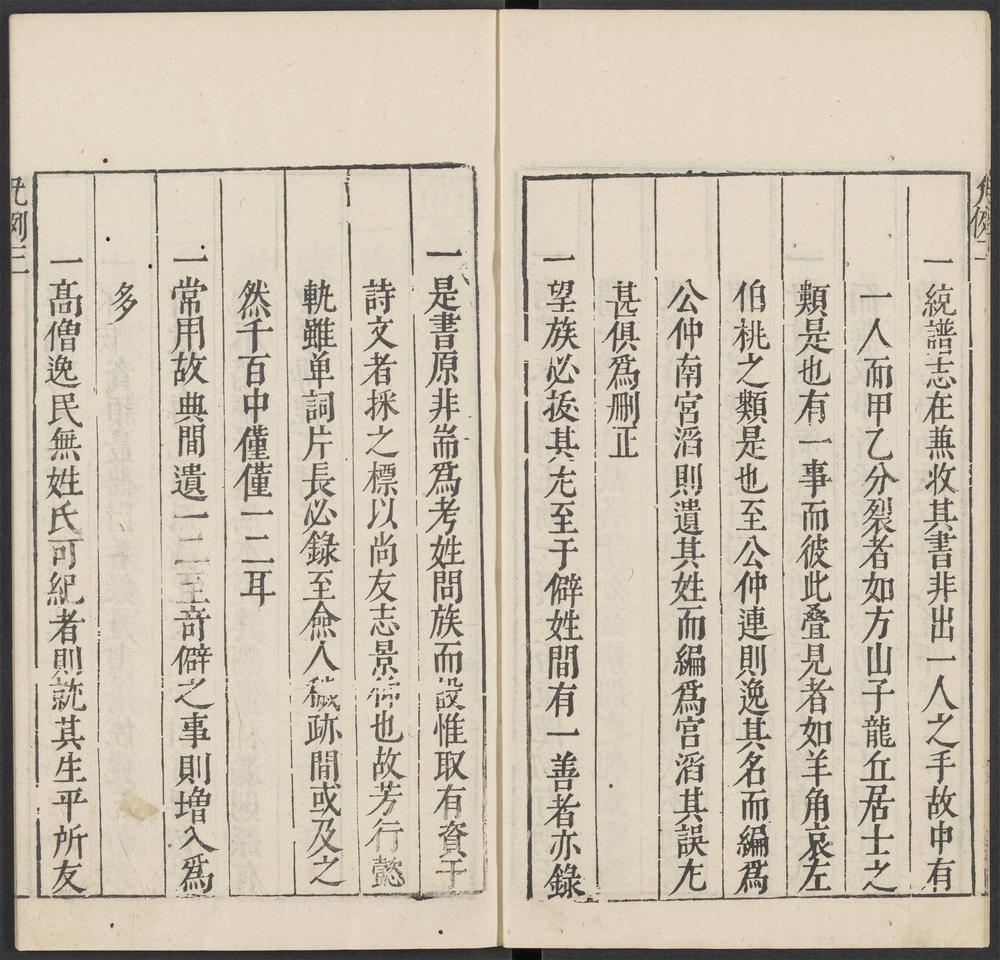 一統譜志在兼收其書非出一人之手故中有
一人而甲乙分裂者如方山子龍丘居士之
類是也有一事而彼此叠見者如羊角哀左
伯桃之類是也至公仲連則逸其名而編爲
公仲南宮滔則遺其姓而編爲宮滔其誤尤
甚俱爲刪正
一望族必拔其尤至于僻姓間有一善者亦錄
凡例三
一是書原非耑爲考姓問族而設惟取有資于
詩文者採之標以尚友志景也故芳行懿
軌雖单詞片長必錄至僉人穢跡間或及之
然千百中僅僅一二耳
一常用故典間遺一二至奇僻之事則增入爲
多
一高僧逸民無姓氏可紀者則就其生平所友